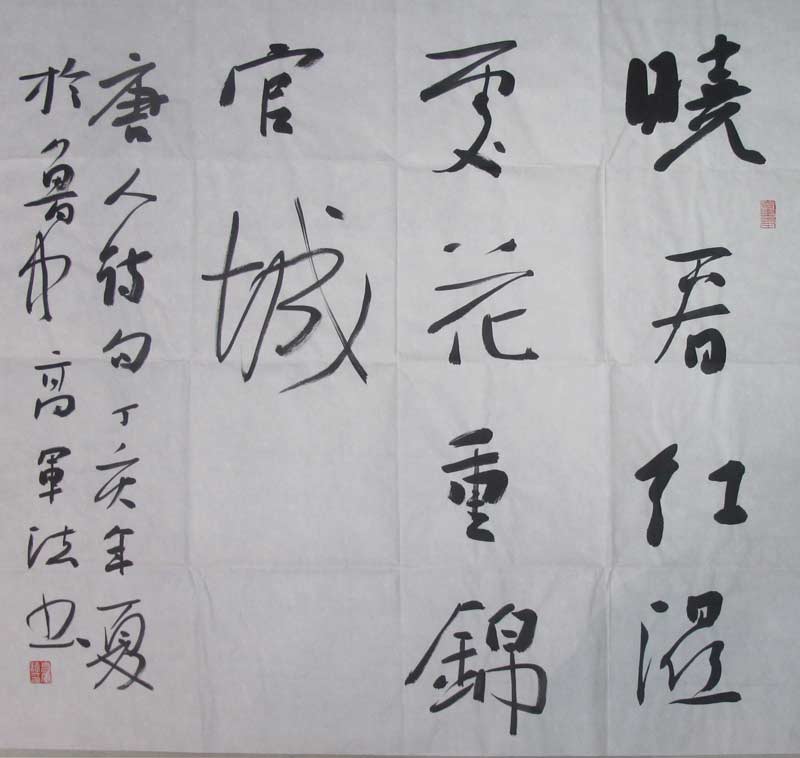 曉看红湿
處花重錦
官城
唐人诗句丁亥年夏
於魯中高軍法书